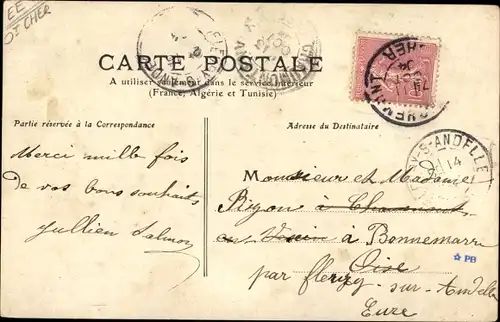 EE
OI CHER
CARTE POSTALE
A utiliser seulement dans le service intérieur
(France, Algérie et Tunisie)
Partie réservée à la Correspondance
Adresse du Destinataire
Merci mille fois
de vos bons souhaits
Jullien
Monsieur et Madame
Pigon à Chaumont
en Vexin à Bonnemarre
Oise
par fleury-sur-Andelle
Eure
S-ANDELLE
14
PB